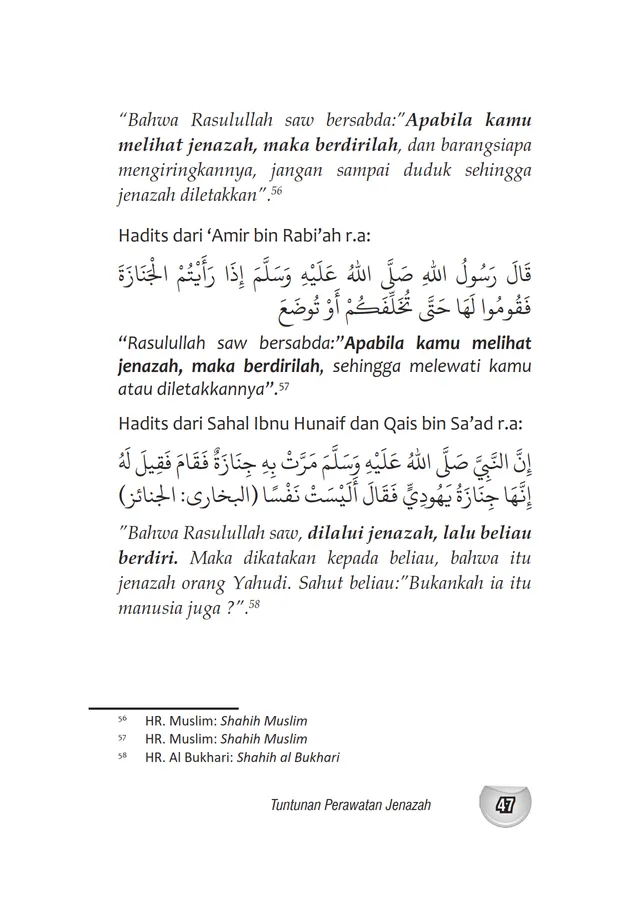 “Bahwa Rasulullah saw bersabda:”Apabila kamu
melihat jenazah, maka berdirilah, dan barangsiapa
mengiringkannya, jangan sampai duduk sehingga
jenazah diletakkan”.56
Hadits dari ‘Amir bin Rabi’ah r.a:
قَالَ رَسُولُ اللهِ صَلَّى اللهُ عَلَيْهِ وَسَلَّمَ إِذَا رَأَيْتُمْ الْجَنَازَةَ
فَقُومُوا لَهَا حَتَّى تُخَلِّفَكُمْ أَوْ تُوضَعَ
“Rasulullah saw bersabda:”Apabila kamu melihat
jenazah, maka berdirilah, sehingga melewati kamu
atau diletakkannya”.57
Hadits dari Sahal Ibnu Hunaif dan Qais bin Sa’ad r.a:
إِنَّ النَّبِيَّ صَلَّى اللهُ عَلَيْهِ وَسَلَّمَ مَرَّتْ بِهِ جِنَازَةٌ فَقَامَ فَقِيلَ لَهُ
إِنَّهَا جِنَازَةُ يَهُودِيٍّ فَقَالَ أَلَيْسَتْ نَفْسًا (البخارى: الجنائز)
”Bahwa Rasulullah saw, dilalui jenazah, lalu beliau
berdiri. Maka dikatakan kepada beliau, bahwa itu
jenazah orang Yahudi. Sahut beliau:”Bukankah ia itu
manusia juga ?”.58
56 HR. Muslim: Shahih Muslim
57 HR. Muslim: Shahih Muslim
58 HR. Al Bukhari: Shahih al Bukhari
Tuntunan Perawatan Jenazah 47